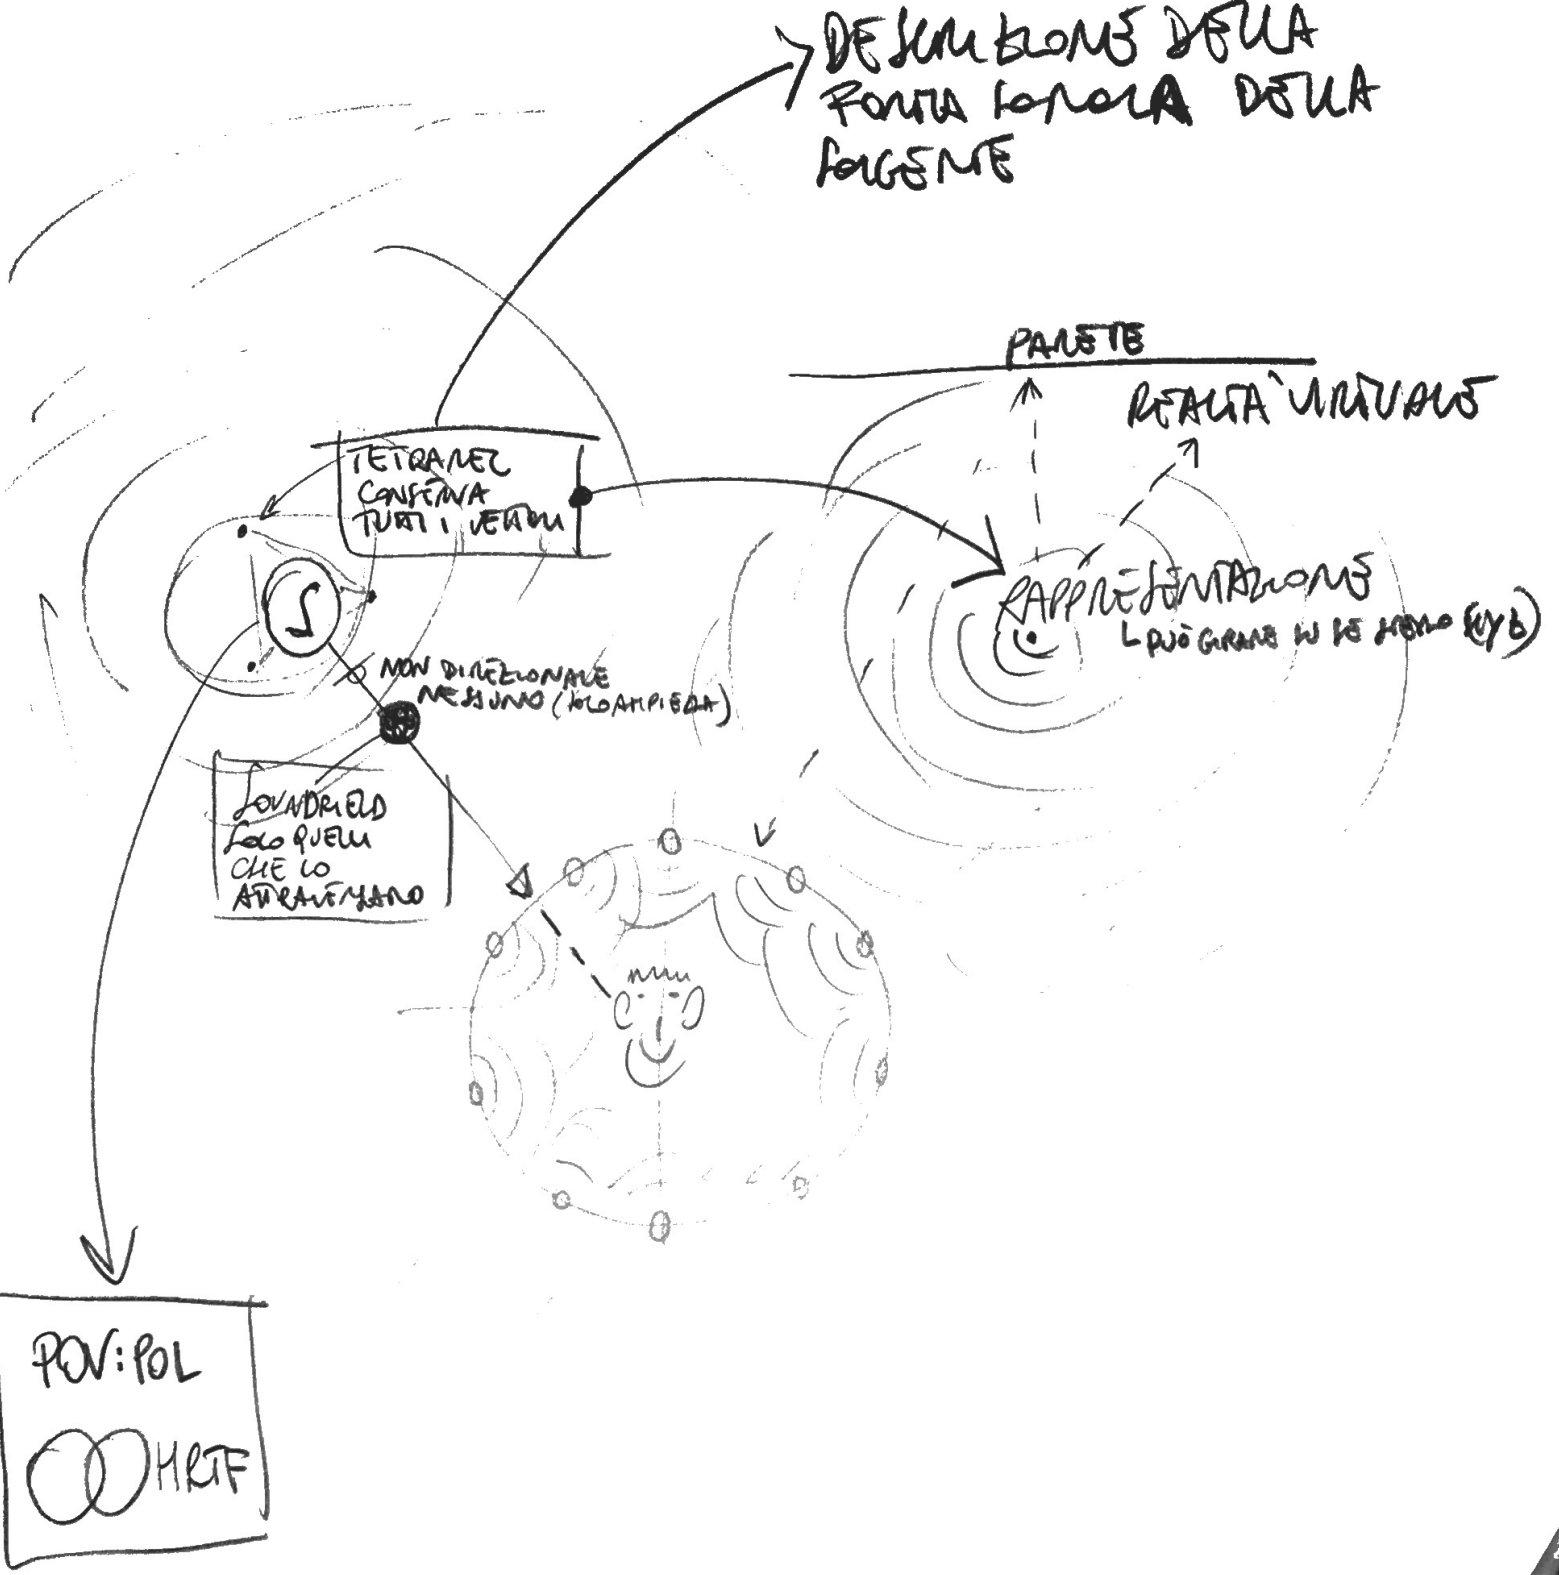 DESCRIZIONE DELLA
FORMA SONORA DELLA
SORGENTE
PARETE
REALTÀ VIRTUALE
TETRAREC
CONSERVA
TUTTI I VETTORI
S
RAPPRESENTAZIONE
PUÒ GIRARE SU SE STESSO
NON DIREZIONALE
NESSUNO (SOLO AMPIEZZA)
SOUNDFIELD
SOLO QUELLI
CHE LO
ATTRAVERSANO
POV:POL
HRTF